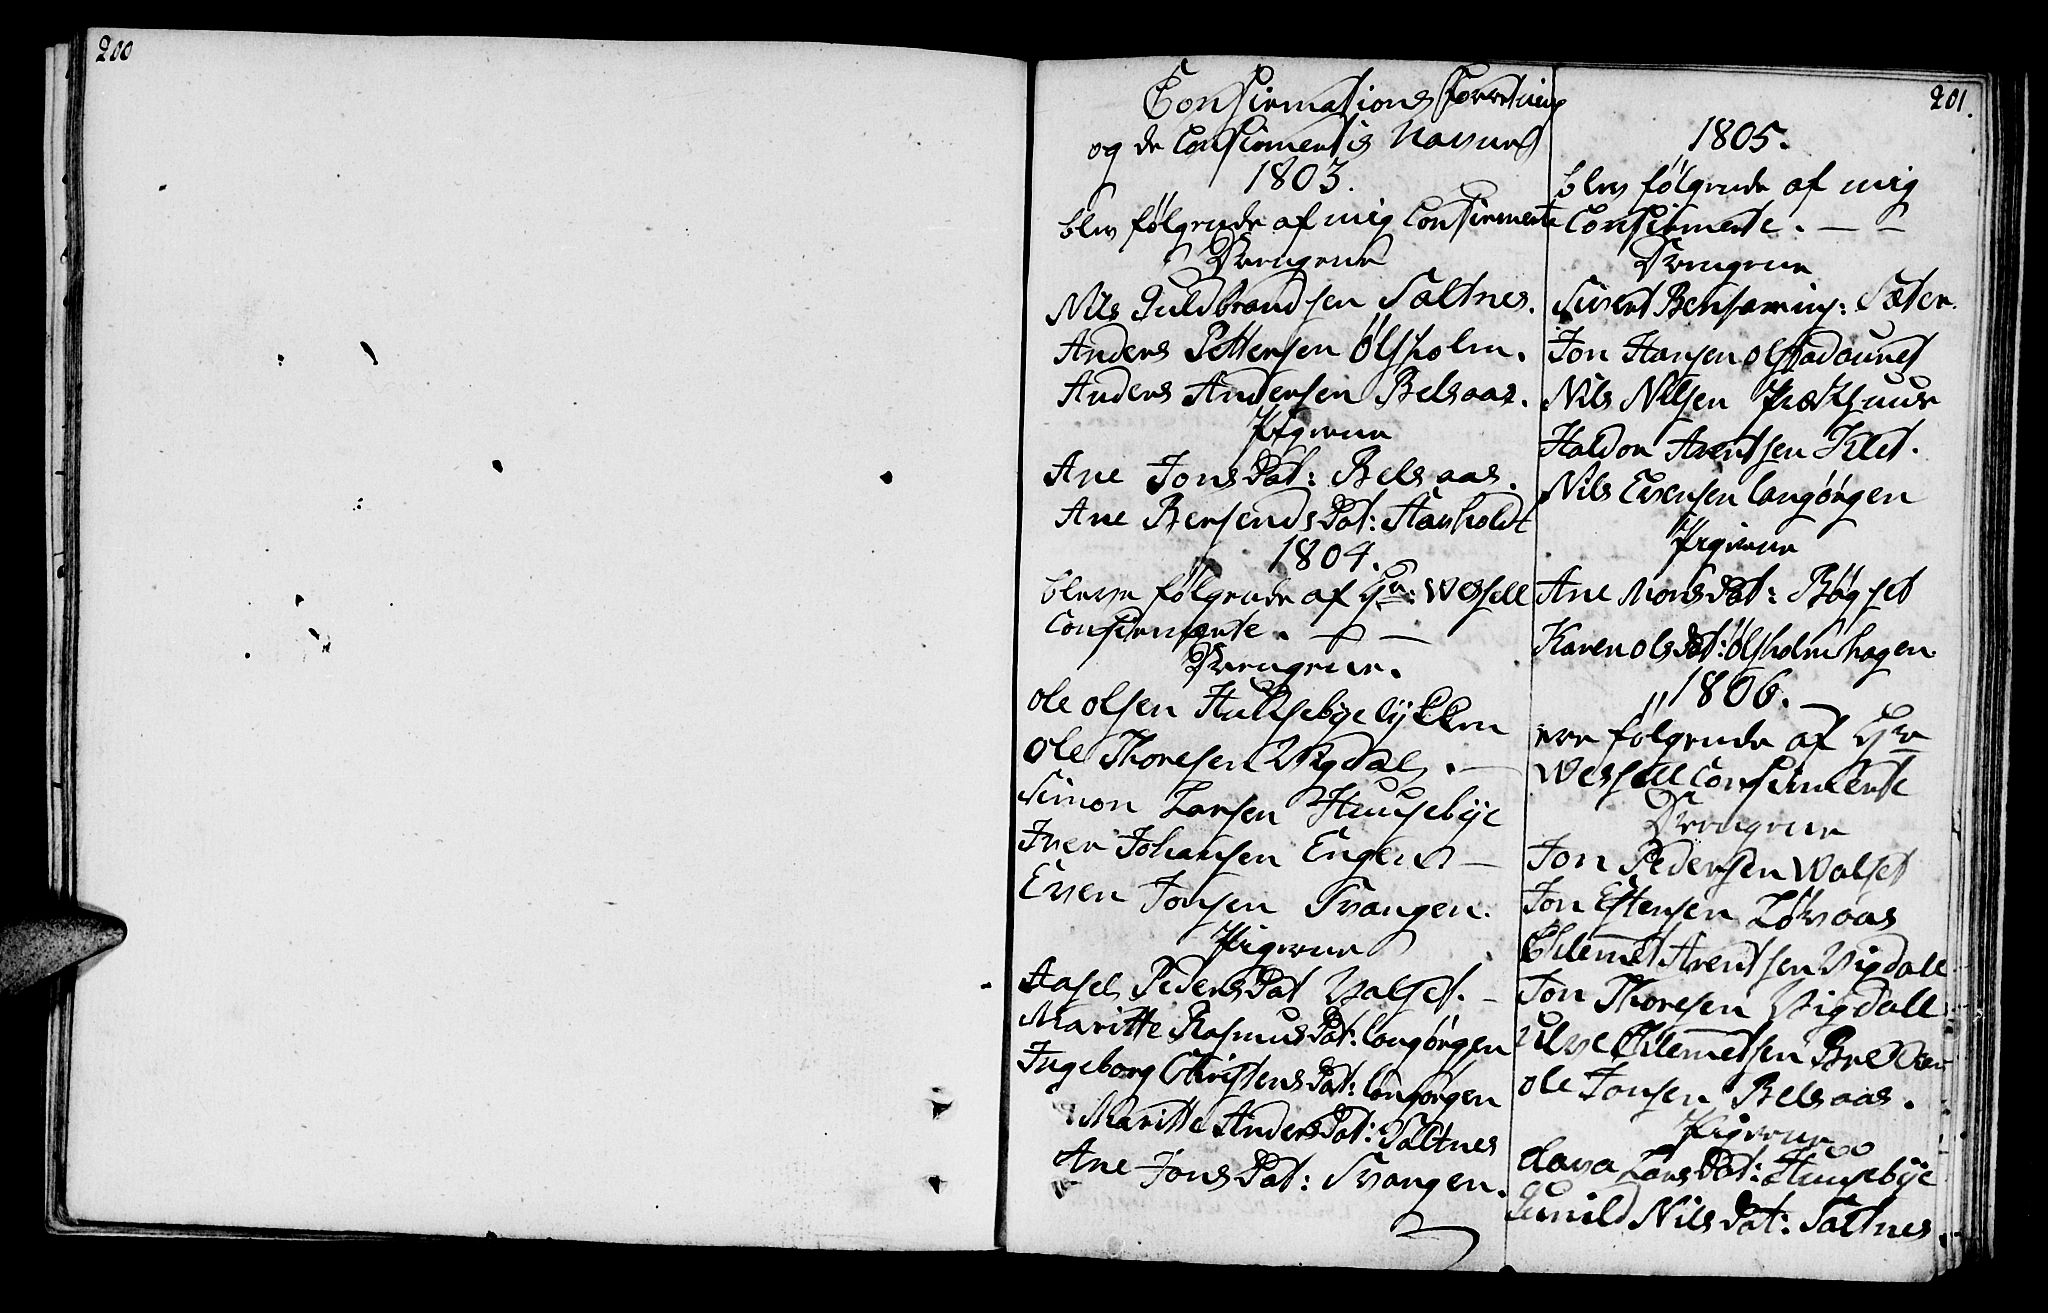 200
201.
Confirmations Forretning
og de Confirmertis Navne
1803.
blev følgende af mig Confirmerte
Drengene
Nils Guldbrandsen Saltnes.
Anders Pettersen Ølsholm.
Anders Andersen Belsaas.
Pigerne
Ane Jons Dat: Belsaas.
Ane Bersends Dat:
1804.
bleve følgende af Hr: Wessell
Confirmerte. — —
Drengene.
Ole Olsen Huusebyelykken
Ole Thoresen Vigdal. —
Simon Larsen Huusebye
Iver Johansen Engen —
Even Jonsen Svangen.
Pigerne
Aasel Peders Dat Valset. —
Maritte Rasmus Dat: Langørgen
Ingeborg Christens Dat: Langørgen
Maritte Anders Dat: Saltnes
Ane Jons Dat: Svangen.
1805.
blev følgende af mig
Confirmerte. — —
Drengene
Sivert Benjamins: Sæter.
Jon Hansen
Nils Nilsen
Haldor Arentsen Klet.
Nils Evensen Langørgen
Pigerne
Ane Mons Dat: Bøgset
Karen Ols Dat: Ølsholmhagen.
1806.
ere følgende af Hr
Wessell Confirmerte
Drengene
Jon Pedersen Walset
Jon Estensen Løvaas
Chlemet Arentsen Vigdall
Jon Thoresen Vigdall
Chlemetsen
Ole Jonsen Belsaas.
Pigerne
Lars Dat: Huusebye
Gunild Nils Dat: Saltnes.